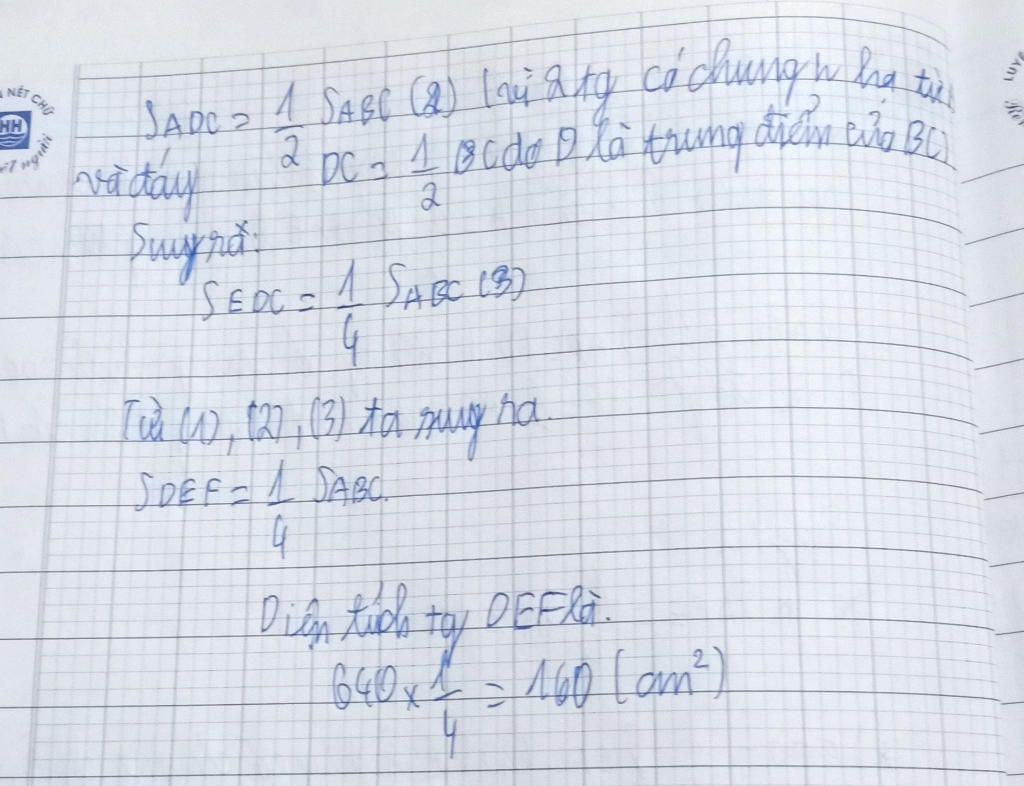 NÉT CHỮ
HH
LUYỆ
S ADC = 1/2 S ABC (2) (vì 2 tg có chung h hạ từ
và đáy DC = 1/2 BC do D là trung điểm của BC)
Suy ra:
S EDC = 1/4 S ABC (3)
Từ (1), (2), (3) ta suy ra.
S DEF = 1/4 S ABC.
Diện tích tg DEF là.
640 x 1/4 = 160 (cm²)